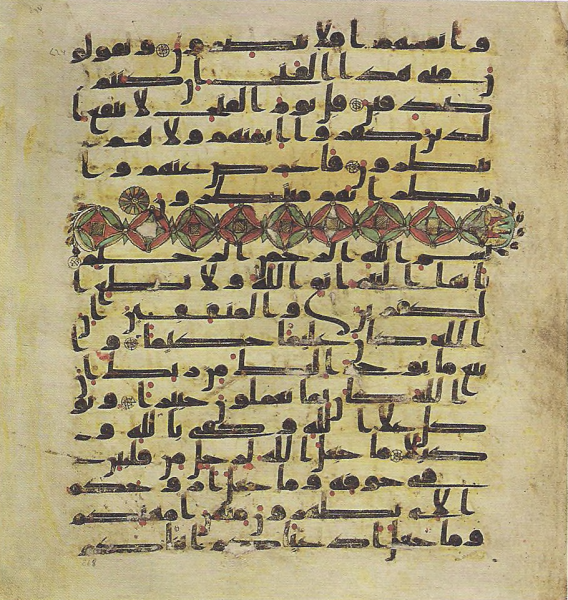 وانفسهم افلا يبصرون ويقولو
ن متى هذا الفتح ان كنتم
صدقين قل يوم الفتح لا ينفع ا
لذين كفروا ايمنهم ولا هم
ينظرون فاعرض عنهم وا
نتظر انهم منتظرون
بسم الله الرحمن الرحيم
يايها النبي اتق الله ولا تطع ا
لكفرين والمنفقين ان
الله كان عليما حكيما وا
تبع ما يوحى اليك من ربك ان
الله كان بما تعملون خبيرا وتو
كل على الله وكفى بالله و
كيلا ما جعل الله لرجل من قلبين
في جوفه وما جعل ازوجكم
الى تظهرون منهن امهتكم
وما جعل ادعياكم ابناكم